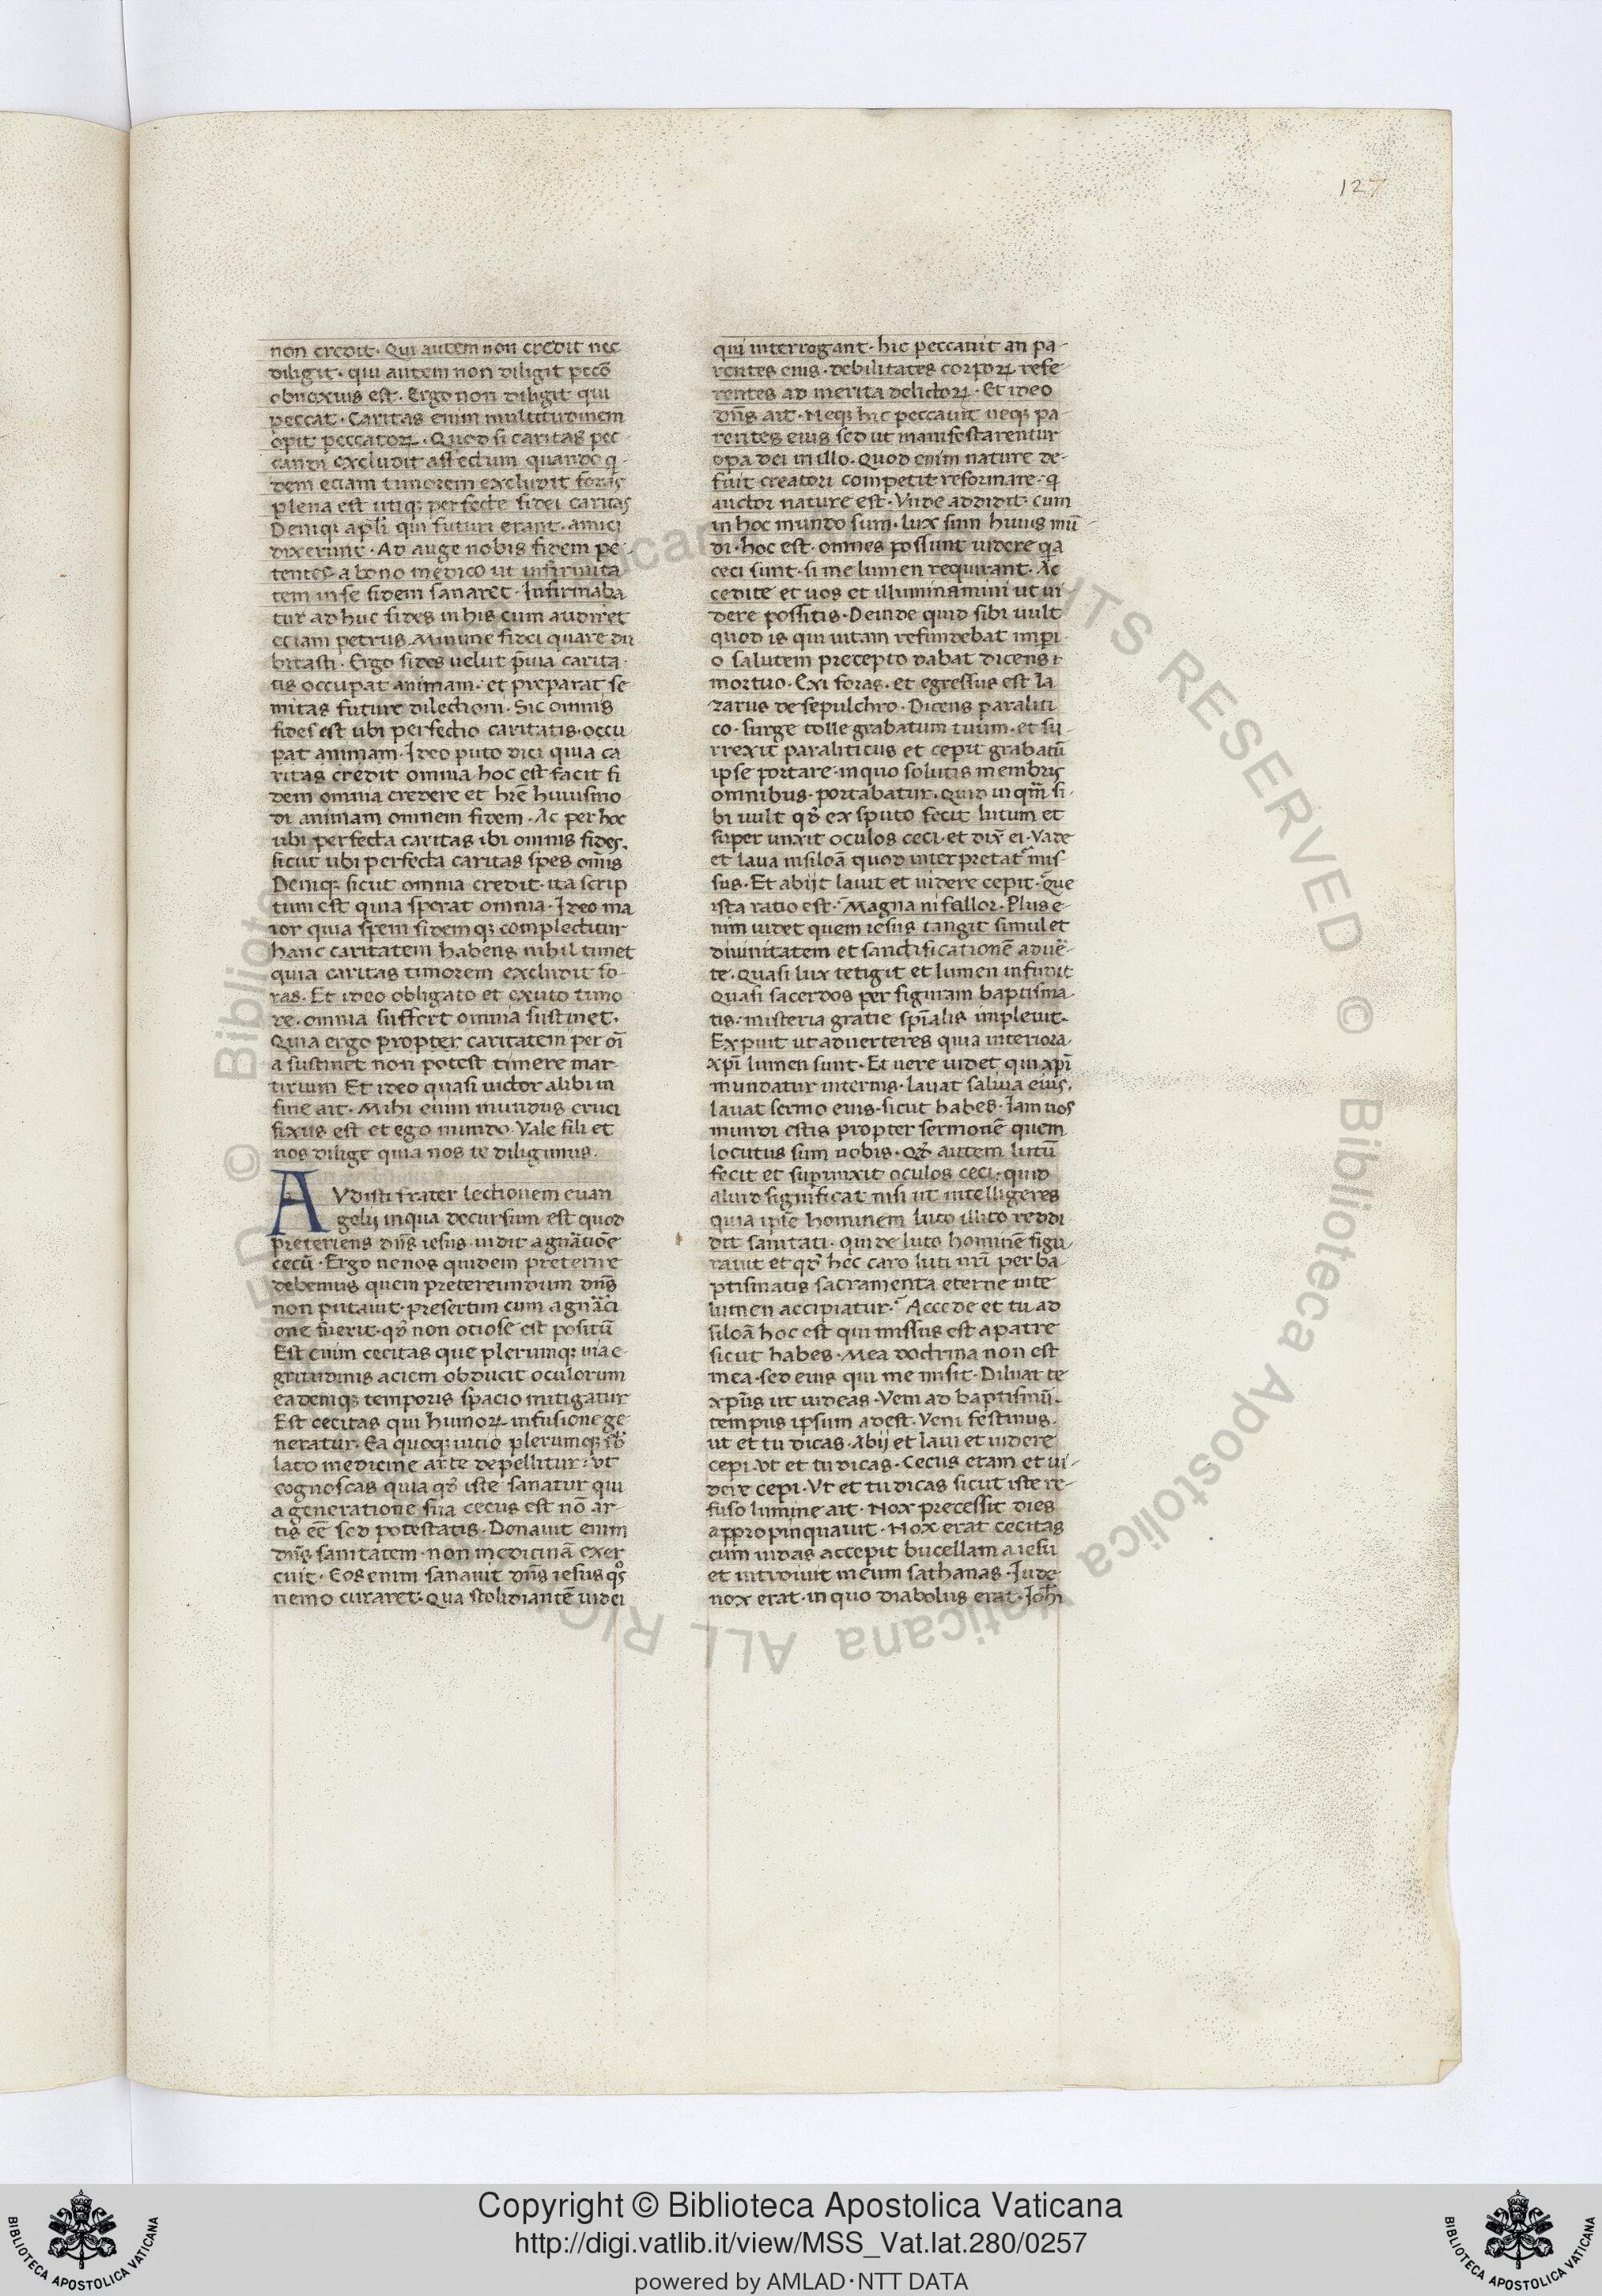 127
non credit. Qui autem non credit nec
diligit. qui autem non diligit pccō
obnoxius est. Ergo non diligit qui
peccat. Caritas enim multitudinem
opit peccatoꝝ. Quod si caritas pec
candi excludit affectum quando q
dem eciam timorem excludit foras
plena est utiqꝫ perfecte fidei caritas
Deniqꝫ apli qui futuri erant. amici
dixerunt. Ad auge nobis fidem pe
tentes a bono medico ut infirmita
tem in se fidem sanaret. Infirmaba
tur ad huc fides in his cum audiret
eciam petrus. Minime fidei quare du
bitasti. Ergo fides uelut p̄uia carita
tis occupat animam. et preparat se
mitas future dilectioni. Sic omnis
fides est ubi perfectio caritatis. occu
pat animam. Ideo puto dici quia ca
ritas credit omnia hoc est facit fi
dem omnia credere et hr̄e huiusmo
di animam omnem fidem. Ac per hoc
ubi perfecta caritas ibi omnis fides.
sicut ubi perfecta caritas spes om̄is
Deniqꝫ sicut omnia credit. ita scrip
tum est quia sperat omnia. Ideo ma
ior quia spem fidem qꝫ complectitur
hanc caritatem habens nihil timet
quia caritas timorem excludit fo
ras. Et ideo obligato et exuto timo
re. omnia suffert omnia sustinet.
Quia ergo propter caritatem per oī
a sustinet non potest timere mar
tirium Et ideo quasi uictor alibi in
fine ait. Mihi enim mundus cruci
fixus est et ego mundo. Vale fili et
nos dilige quia nos te diligimus.
AVdisti frater lectionem euan
gelij in qua decursum est quod
preteriens dn̄s iesus. uidit a gnātiōe
cecū. Ergo ne nos quidem preterire
debemus quem pretereundum dn̄s
non putauit. presertim cum a gnāci
one fuerit. qđ non otiose est positū
Est enim cecitas que plerumqꝫ uia e
gritudinis aciem obducit oculorum
eademqꝫ temporis spacio mitigatur
Est cecitas qui humoꝝ infusione ge
neratur. Ea quoqꝫ uitio plerumqꝫ sb
lato medicine arte depellitur. ut
cognoscas quia qđ iste sanatur qui
a generatione sua cecus est nō ar
tis eē sed potestatis. Donauit enim
dn̄s sanitatem. non medicinā exer
cuit. Eos enim sanauit dn̄s iesus qs
nemo curaret. Qua stolidi antē uidei
qui interrogant. hic peccauit an pa
rentes eius. debilitates corpoꝝ refe
rentes ad merita delictoꝝ. Et ideo
dn̄s ait. Neqꝫ hic peccauit neqꝫ pa
rentes eius sed ut manifestarentur
opa dei in illo. Quod enim nature de
fuit creatori competit reformare. q
auctor nature est. Vnde addidit. cum
in hoc mundo sum. lux sum huius mū
di. hoc est. omnes possunt uidere qa
ceci sunt. si me lumen requirant. Ac
cedite et uos et illuminamini ut ui
dere possitis. Deinde quid sibi uult
quod is qui uitam refundebat imperi
o salutem precepto dabat dicens
mortuo. Exi foras. et egressus est la
zarus de sepulchro. Dicens paraliti
co. surge tolle grabatum tuum. et su
rrexit paraliticus et cepit grabatū
ipse portare. in quo solutis membris
omnibus. portabatur. Quid inqm̄ si
bi uult qđ ex sputo fecit lutum et
super unxit oculos ceci. et dix̄ ei. Vade
et laua in siloā quod interpretat mis
sus. Et abijt lauit et uidere cepit. Que
ista ratio est. Magna ni fallor. Plus e
nim uidet quem iesus tangit simul et
diuinitatem et sanctificationē aduer
te. Quasi lux tetigit et lumen infudit
Quasi sacerdos per figuram baptisma
tis. misteria gratie spīalis impleuit.
Expuit ut aduerteres quia interiora
xp̄i lumen sunt. Et uere uidet qui xp̄i
mundatur internis. lauat saliua eius.
lauat sermo eius. sicut habes. Iam uos
mundi estis propter sermonē quem
locutus sum uobis. Qđ autem lutū
fecit et supunxit oculos ceci. quid
aliud significat nisi ut intelligeres
quia ipse hominem luto illito reddi
dit sanitati. qui de luto hominē figu
rauit et qđ hec caro luti nr̄i per ba
ptismatis sacramenta eterne uite
lumen accipiatur. Accede et tu ad
siloā hoc est qui missus est a patre
sicut habes. Mea doctrina non est
mea. sed eius qui me misit. Diluat te
xp̄us ut uideas. Veni ad baptismū.
tempus ipsum adest. Veni festinus.
ut et tu dicas. Abij et laui et uidere
cepi. Vt et tu dicas. Cecus eram et ui
dere cepi. Vt et tu dicas sicut iste re
fuso lumine ait. Nox precessit dies
appropinquauit. Nox erat cecitas
cum iudas accepit bucellam a iesu
et introiuit in eum sathanas. Iude
nox erat. in quo diabolus erat. Iohī
© Biblioteca Apostolica Vaticana ALL RIGHTS RESERVED
BIBLIOTECA APOSTOLICA VATICANA
Copyright © Biblioteca Apostolica Vaticana
http://digi.vatlib.it/view/MSS_Vat.lat.280/0257
powered by AMLAD·NTT DATA
BIBLIOTECA APOSTOLICA VATICANA